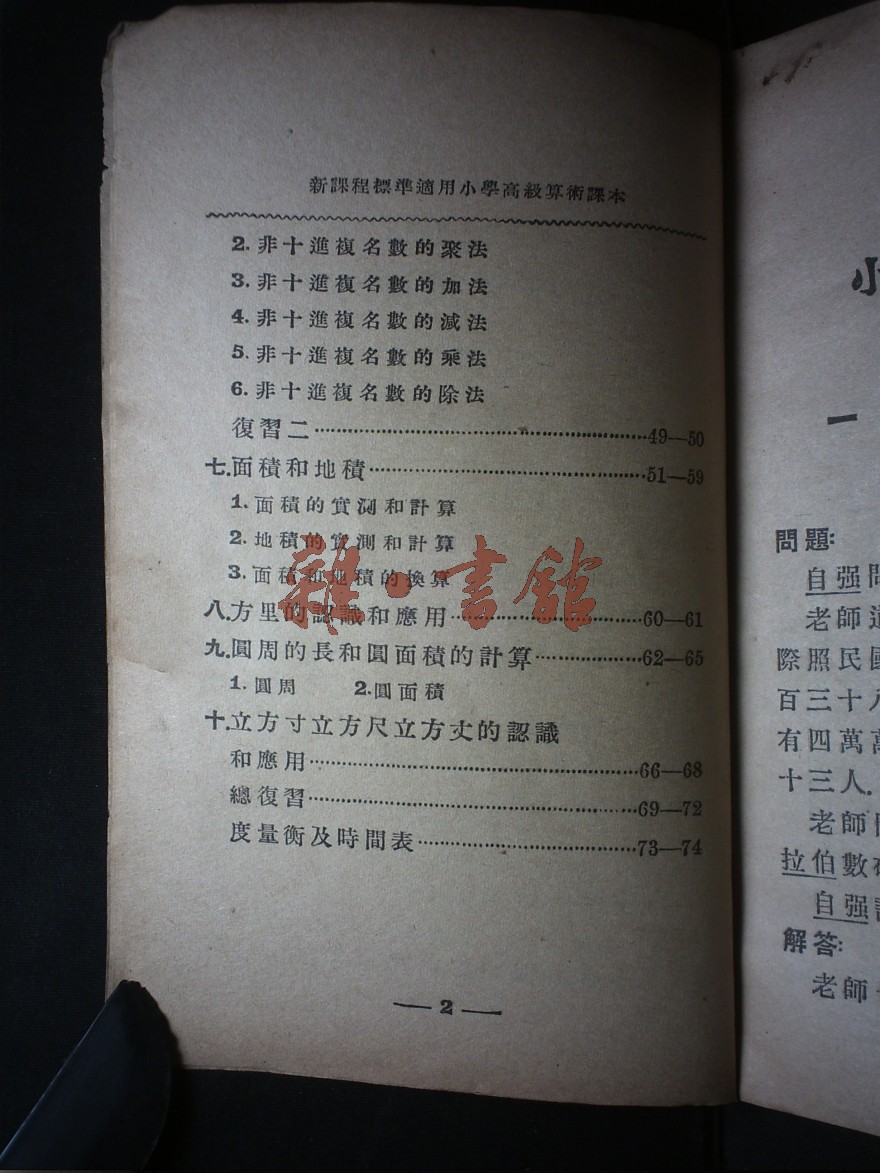 新課程標準適用小學高級算術課本
2. 非十進複名數的聚法
3. 非十進複名數的加法
4. 非十進複名數的減法
5. 非十進複名數的乘法
6. 非十進複名數的除法
復習二……………………49—50
七.面積和地積……………………51—59
1. 面積的實測和計算
2. 地積的實測和計算
3. 面積和地積的換算
八.方里的認識和應用……………………60—61
九.圓周的長和圓面積的計算……………62—65
1. 圓周 2. 圓面積
十.立方寸立方尺立方丈的認識
和應用……………………66—68
總復習……………………69—72
度量衡及時間表……………………73—74
— 2 —
雜·書館
小
一
問題:
自强
老師道
際照民國
百三十八
有四萬萬
十三人.
老師
拉伯數
自强
解答:
老師